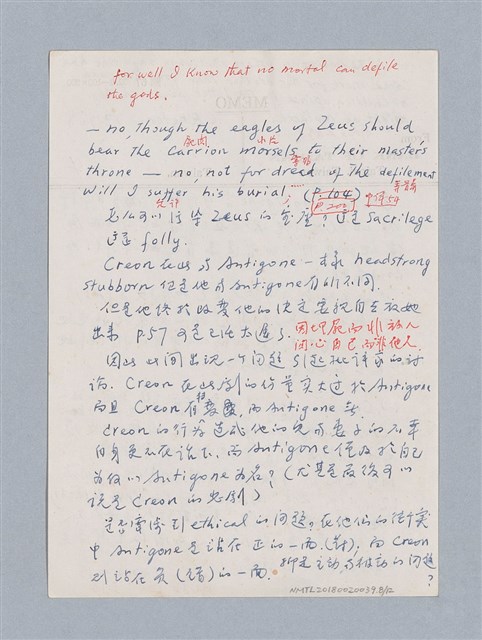 for well I know that no mortal can defile
the gods.
MEMO
— no, though the eagles of Zeus should
死肉 小片
bear the carrion morsels to their master's
throne — no, not for dread of the defilement
will I suffer his burial..... (P.104)
P.202
Zeus 的 這是 sacrilege
這是 folly.
Creon 在此与 Antigone 一樣 headstrong
stubborn 但是他与 Antigone 有所不同.
但是他終於改變他的決定
出來 P.57 可是已經太遲了.
因此此间出現一个问題 引起批評家的討
论. Creon 在此劇的份量实大过於 Antigone
而且 Creon 有轉變, 而 Antigone 無
Creon 的行为造成他的兒子妻子的不幸
自身更不在话下, 而 Antigone 僅及於自己
为何以 Antigone 为名? (尤其是最後可以
说是 Creon 的悲劇)
是否牽涉到 ethical 的问題? 在他们的衝突
中 Antigone 是站在正的一面 (對), 而 Creon
则站在负 (错) 的一面. 抑是主動与被動的问題
?
NMTL20180020039.8/12